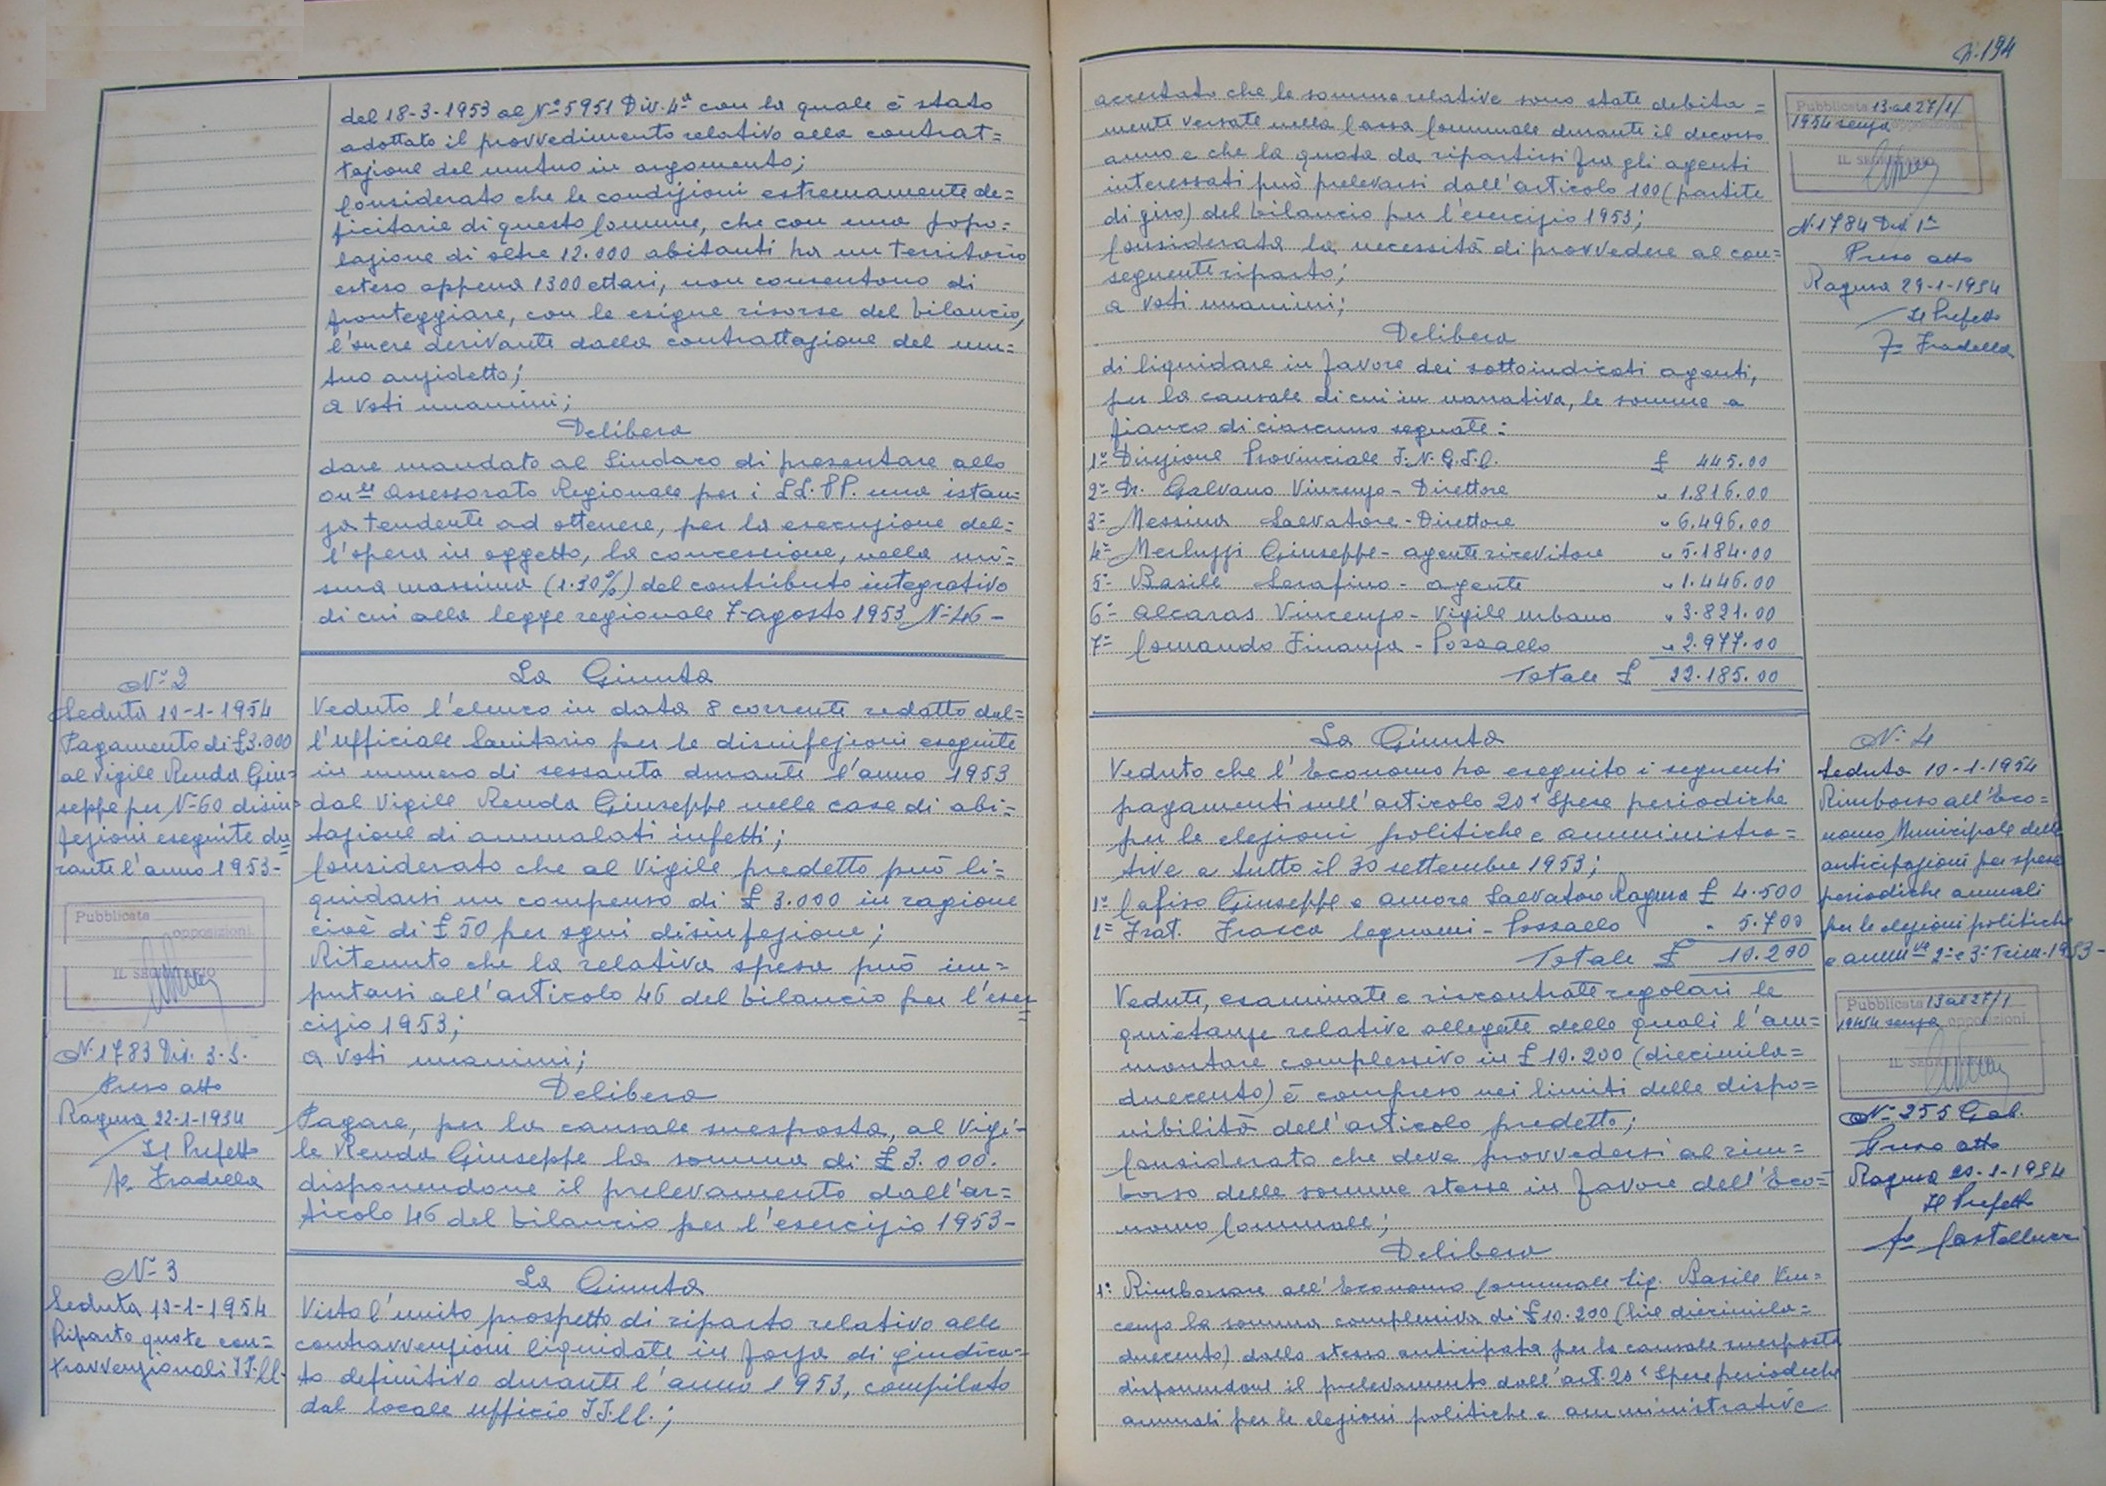 del 18-3-1953 al N° 5951 Div. 4ª con la quale è stato
adottato il provvedimento relativo alla contrat=
tazione del mutuo in argomento;
Considerato che le condizioni estremamente de=
ficitarie di questo Comune, che con una popo=
lazione di oltre 12.000 abitanti ha un territorio
esteso appena 1300 ettari, non consentono di
fronteggiare, con le esigue risorse del bilancio,
l'onere derivante dalla contrattazione del mu=
tuo anzidetto;
a voti unanimi;
Delibera
dare mandato al Sindaco di presentare allo
on.le Assessorato Regionale per i LL.PP. una istan=
za tendente ad ottenere, per la esecuzione del=
l'opera in oggetto, la concessione, nella mi=
sura massima (1.30%) del contributo integrativo
di cui alla legge regionale 7-agosto 1953 N° 46-
N° 2
Seduta 10-1-1954
Pagamento di £3.000
al Vigile Renda Giu=
seppe per N° 60 disin=
fezioni eseguite du=
rante l'anno 1953-
Pubblicata
opposizioni.
IL SEGRETARIO
N. 1783 Div. 3.S.
Preso atto
Ragusa 22-1-1954
Il Prefetto
fo Fradella
La Giunta
Veduto l'elenco in data 8 corrente redatto dal=
l'Ufficiale Sanitario per le disinfezioni eseguite
in numero di sessanta durante l'anno 1953
dal Vigile Renda Giuseppe nelle case di abi=
tazione di ammalati infetti;
Considerato che al Vigile predetto può li=
quidarsi un compenso di £ 3.000 in ragione
cioè di £ 50 per ogni disinfezione;
Ritenuto che la relativa spesa può im=
putarsi all'articolo 46 del bilancio per l'eser=
cizio 1953;
a voti unanimi;
Delibera
Pagare, per la causale suesposta, al Vigi=
le Renda Giuseppe la somma di £ 3.000.
disponendone il prelevamento dall'ar=
ticolo 46 del bilancio per l'esercizio 1953-
N° 3
Seduta 10-1-1954
Riparto quote con=
travvenzionali II.CC.
La Giunta
Visto l'unito prospetto di riparto relativo alle
contravvenzioni liquidate in forza di giudica=
to definitivo durante l'anno 1953, compilato
dal locale ufficio II.CC.;
N. 194
accertato che le somme relative sono state debita=
mente versate nella Cassa Comunale durante il decorso
anno e che la quota da ripartirsi fra gli agenti
interessati può prelevarsi dall'articolo 100 (partite
di giro) del bilancio per l'esercizio 1953;
Considerata la necessità di provvedere al con=
seguente riparto;
a voti unanimi;
Delibera
di liquidare in favore dei sottoindicati agenti,
per la causale di cui in narrativa, le somme a
fianco di ciascuno segnate:
1° Direzione Provinciale I.N.G.I.C. £ 445.00
2° Dr. Galvano Vincenzo - Direttore " 1.816.00
3° Messina Salvatore - Direttore " 6.496.00
4° Merluzzi Giuseppe - agente ricevitore " 5.184.00
5° Basile Serafino - agente " 1.446.00
6° Alcaras Vincenzo - Vigile urbano " 3.821.00
7° Comando Finanza - Pozzallo " 2.977.00
Totale £ 22.185.00
Pubblicata 13 al 27/1/
1954 senza opposizioni
IL SEGRETARIO
N. 1784 Div. 1ª
Preso atto
Ragusa 29-1-1954
Il Prefetto
Fo Fradella
La Giunta
Veduto che l'Economo ha eseguito i seguenti
pagamenti sull'articolo 20 "Spese periodiche
per le elezioni politiche e amministra=
tive a tutto il 30 settembre 1953;
1° Cafiso Giuseppe e Amore Salvatore Ragusa £ 4.500
2° Frat. Frasca legnami - Pozzallo " 5.700
Totale £ 10.200
Vedute, esaminate e riscontrate regolari le
quietanze relative allegate delle quali l'am=
montare complessivo in £ 10.200 (diecimila=
duecento) è compreso nei limiti delle dispo=
nibilità dell'articolo predetto;
Considerato che deve provvedersi al rim=
borso delle somme stesse in favore dell'Eco=
nomo Comunale;
Delibera
1° Rimborsare all'Economo Comunale Sig. Basile Vin=
cenzo la somma complessiva di £ 10.200 (lire diecimila=
duecento) dallo stesso anticipata per la causale suesposta
disponendone il prelevamento dall'art. 20 "Spese periodiche
annuali per le elezioni politiche e amministrative
N° 4
Seduta 10-1-1954
Rimborso all'Eco=
nomo Municipale delle
anticipazioni per spese
periodiche annuali
per le elezioni politiche
e amm.ve 2° e 3° Trim. 1953-
Pubblicata 13 al 27/1
1954 senza opposizioni
IL SEGRETARIO
N° 255 Gab.
Preso atto
Ragusa 20-1-1954
Il Prefetto
fo Castellucci